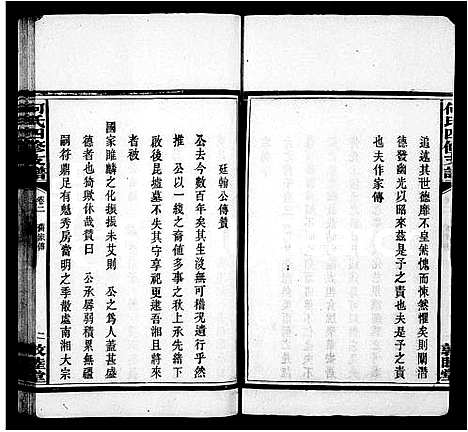 何氏四修支譜
敦睦堂
追述其世德靡不皇然愧而悚然懼矣則闡潛
德發幽光以昭來茲是子之責也夫是子之責
也夫作家傳
廷翰公傳贊
公去今數百年矣其生没無可稽況遺行乎然
推 公以一綫之裔値多事之秋上承先緒下
啟後昆墳墓不失其守享祀更逮吾湘且將來
者被
國家雎麟之化振振未艾則 公之為人蓋甚盛
德者也猗歟休哉贊曰 公承孱弱積累無疆
嗣符鼎足有魁秀房當明之季散處南湘大宗
何氏四修支譜
卷二
衡宗傳
敦睦堂